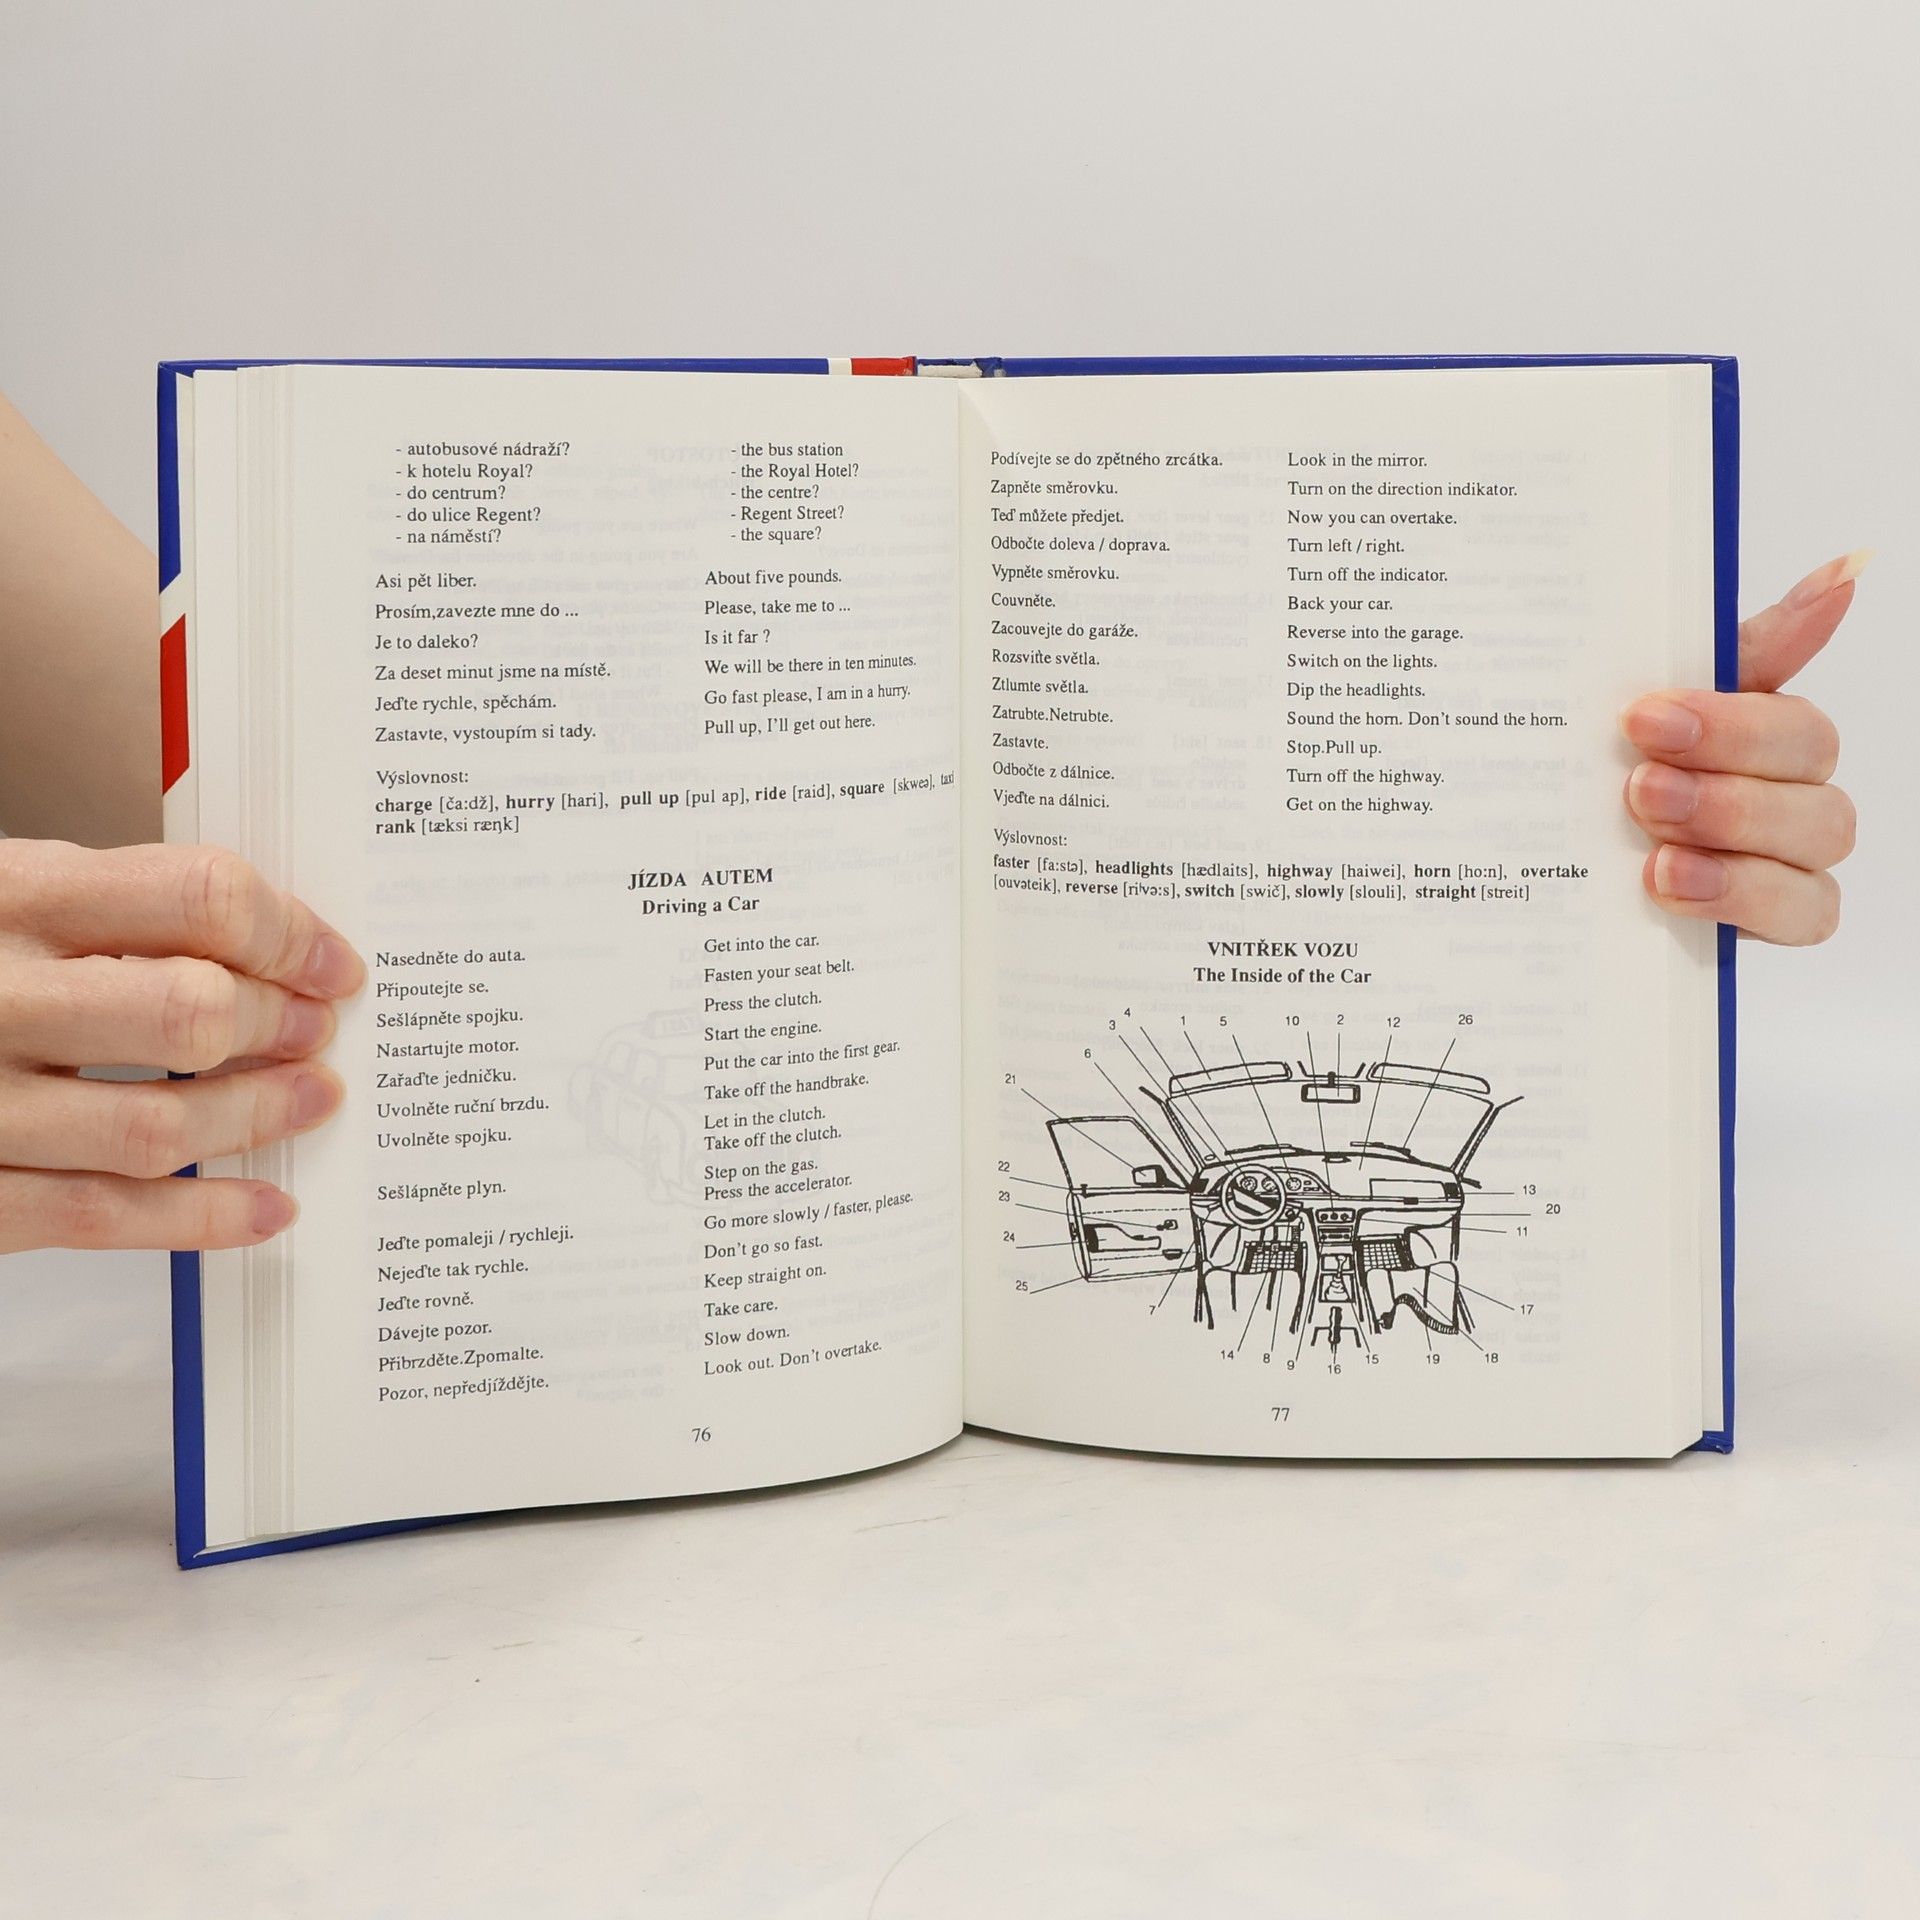 - autobusové nádraží? - the bus station
- k hotelu Royal? - the Royal Hotel?
- do centrum? - the centre?
- do ulice Regent? - Regent Street?
- na náměstí? - the square?
Asi pět liber. About five pounds.
Prosím,zavezte mne do ... Please, take me to ...
Je to daleko? Is it far ?
Za deset minut jsme na místě. We will be there in ten minutes.
Jeďte rychle, spěchám. Go fast please, I am in a hurry.
Zastavte, vystoupím si tady. Pull up, I'll get out here.
Výslovnost:
charge [ča:dž], hurry [hari], pull up [pul ap], ride [raid], square [skweə], taxi
rank [tæksi ræŋk]
JÍZDA AUTEM
Driving a Car
Nasedněte do auta. Get into the car.
Připoutejte se. Fasten your seat belt.
Sešlápněte spojku. Press the clutch.
Nastartujte motor. Start the engine.
Zařaďte jedničku. Put the car into the first gear.
Uvolněte ruční brzdu. Take off the handbrake.
Uvolněte spojku. Let in the clutch.
Take off the clutch.
Sešlápněte plyn. Step on the gas.
Press the accelerator.
Jeďte pomaleji / rychleji. Go more slowly / faster, please.
Nejeďte tak rychle. Don't go so fast.
Jeďte rovně. Keep straight on.
Dávejte pozor. Take care.
Přibrzděte.Zpomalte. Slow down.
Pozor, nepředjíždějte. Look out. Don't overtake.
76
Podívejte se do zpětného zrcátka. Look in the mirror.
Zapněte směrovku. Turn on the direction indikator.
Teď můžete předjet. Now you can overtake.
Odbočte doleva / doprava. Turn left / right.
Vypněte směrovku. Turn off the indicator.
Couvněte. Back your car.
Zacouvejte do garáže. Reverse into the garage.
Rozsviťte světla. Switch on the lights.
Ztlumte světla. Dip the headlights.
Zatrubte.Netrubte. Sound the horn. Don't sound the horn.
Zastavte. Stop.Pull up.
Odbočte z dálnice. Turn off the highway.
Vjeďte na dálnici. Get on the highway.
Výslovnost:
faster [fa:stə], headlights [hædlaits], highway [haiwei], horn [ho:n], overtake
[ouvəteik], reverse [ri'və:s], switch [swič], slowly [slouli], straight [streit]
VNITŘEK VOZU
The Inside of the Car
4 3 1 5 10 2 12 26
6
21
22
23
24
25
13
20
11
17
7 14 8 9 16 15 19 18
77